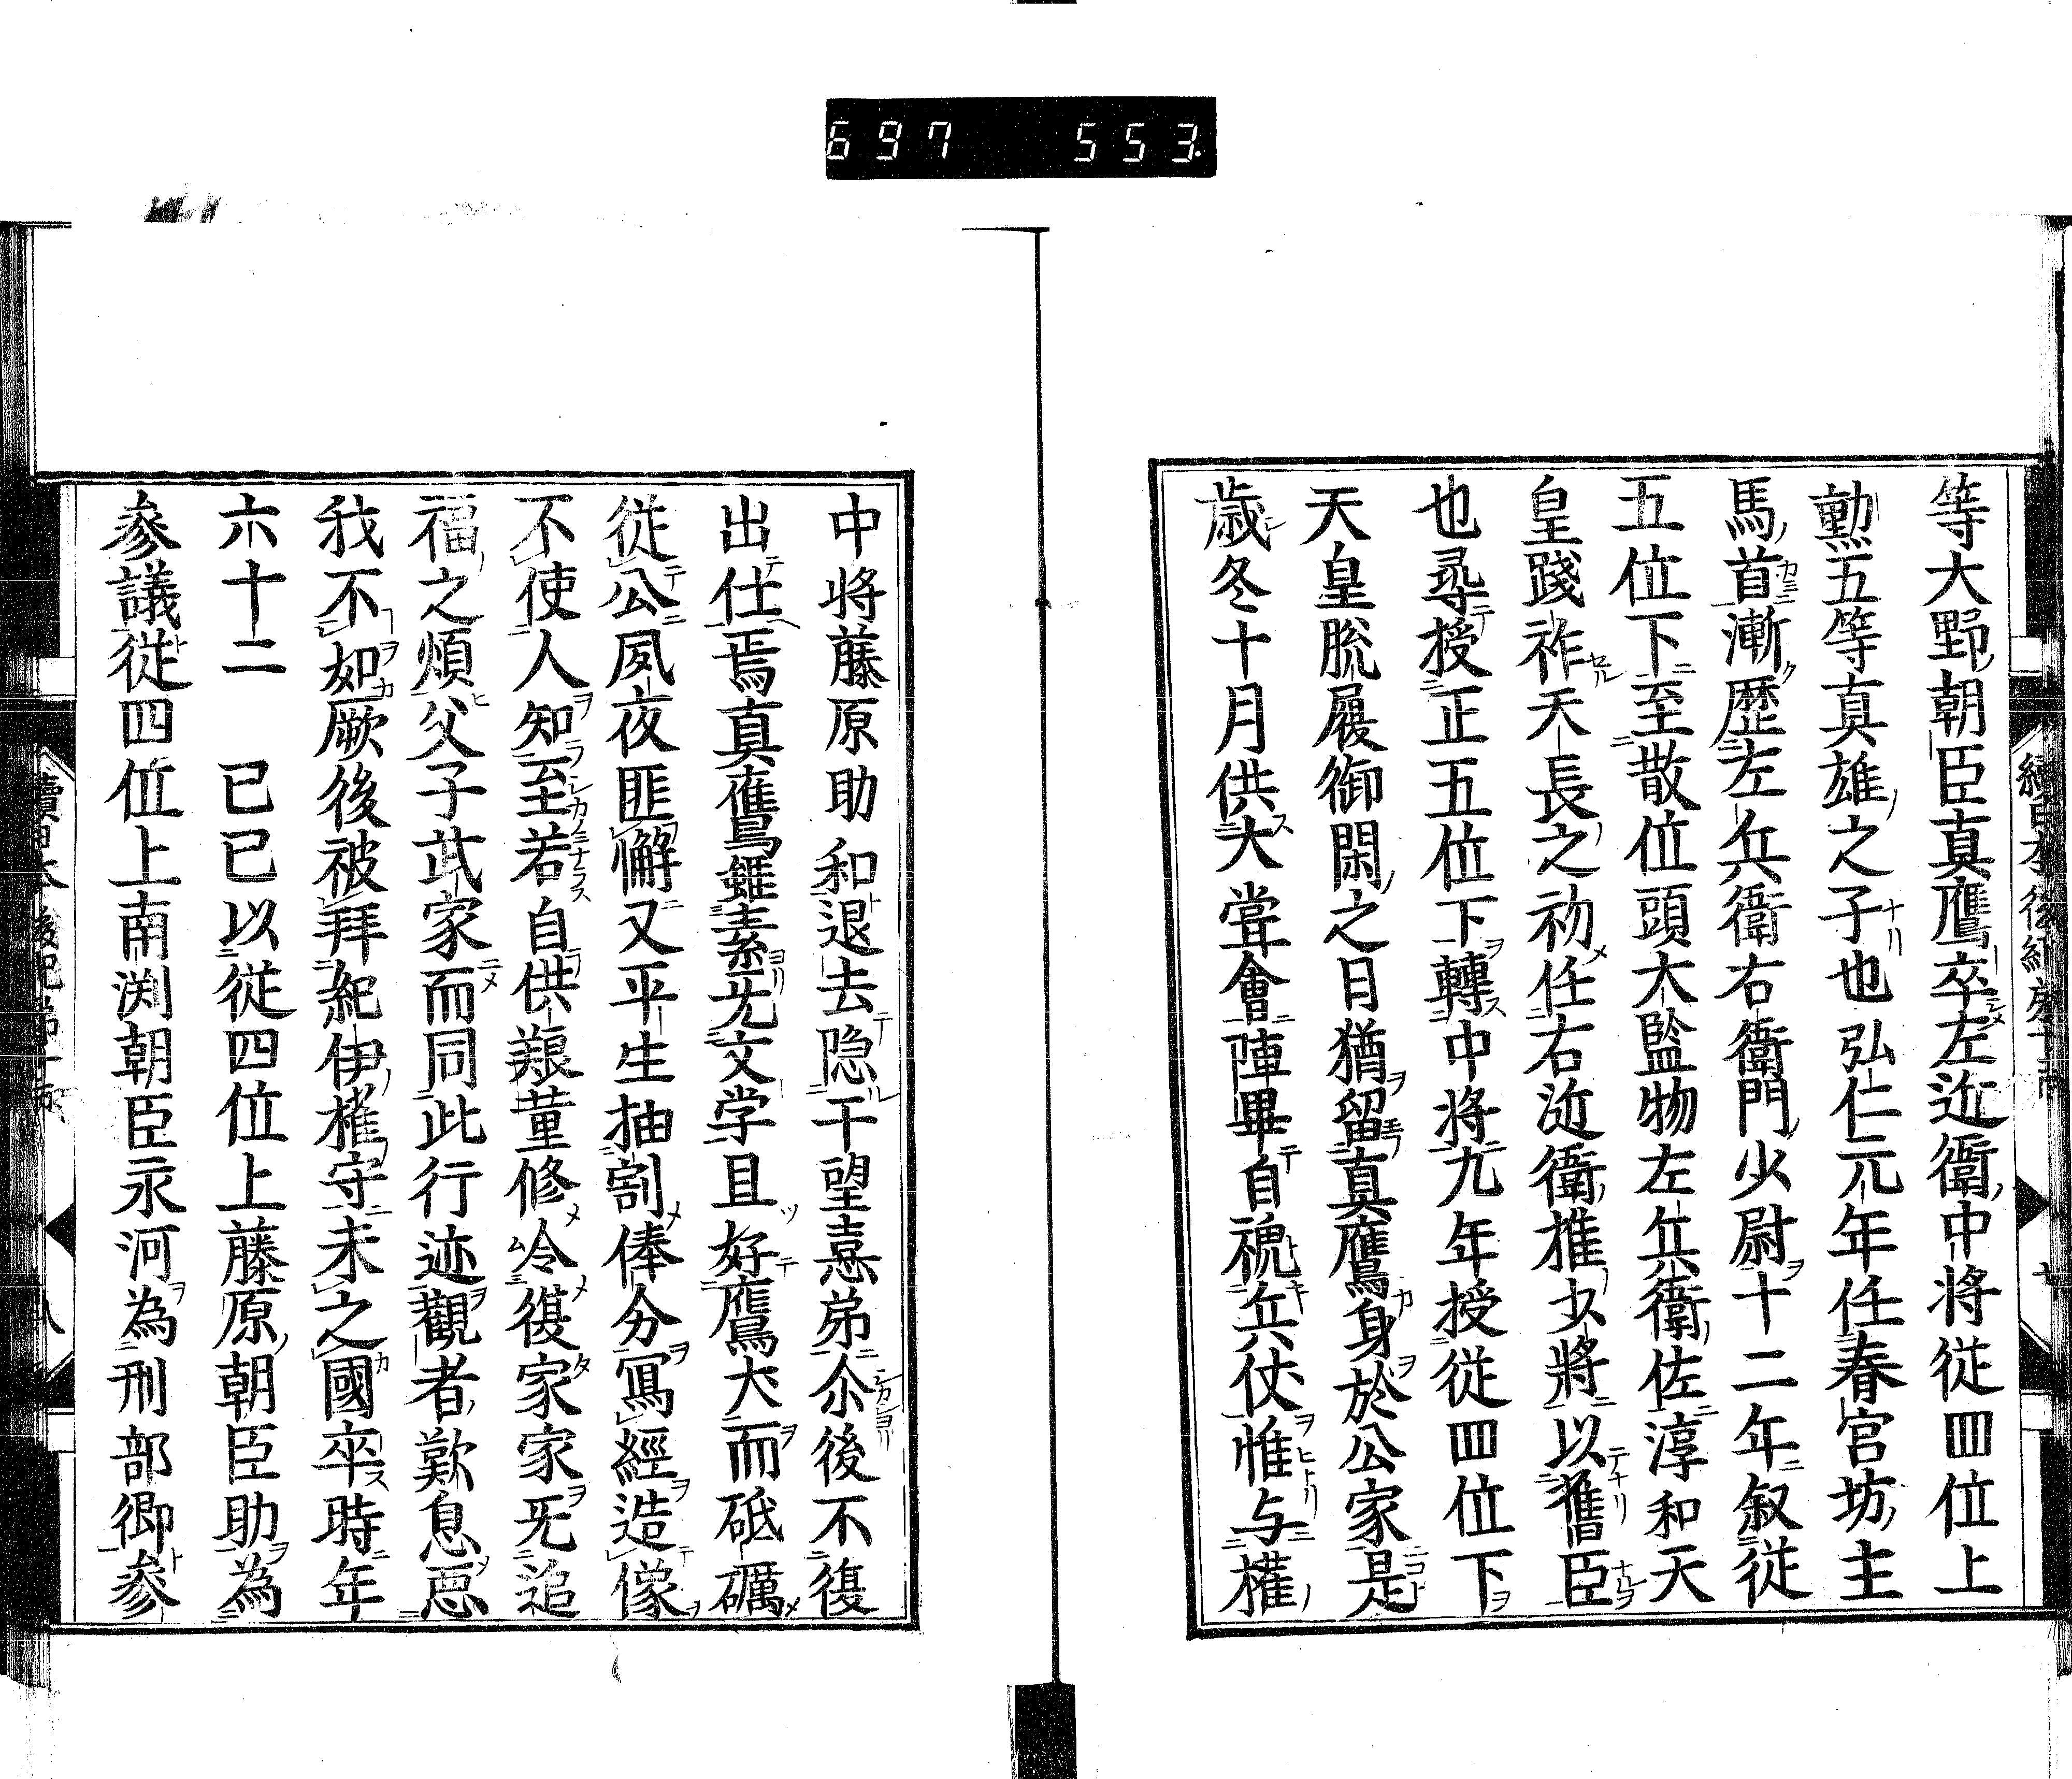 697 553
等大野朝臣真鷹卒左近衛中将従四位上
勲五等真雄之子也弘仁元年任春宮坊主
馬首漸歴左兵衛右衛門少尉十二年叙従
五位下至散位頭大監物左兵衛佐淳和天
皇踐祚天長之初任右近衛権少將以舊臣
也尋授正五位下轉中将九年授従四位下
天皇脱履御閑之日猶留真鷹身於公家是
歳冬十月供大甞會陣畢自褫兵仗惟与権
中將藤原助和退去隐干望憙弟尒後不復
出仕焉真鷹雖素无文学且好鷹犬而砥礪
従公夙夜匪懈又平生抽割俸分冩經造像
不使人知至若自供艱薫修冷復家家旡追
福之煩父子武家而同此行迹觀者歎息惡
我不如厥後被拜紀伊権守未之國卒時年
六十二 已巳以従四位上藤原朝臣助為
参議従四位上南渕朝臣永河為刑部卿参